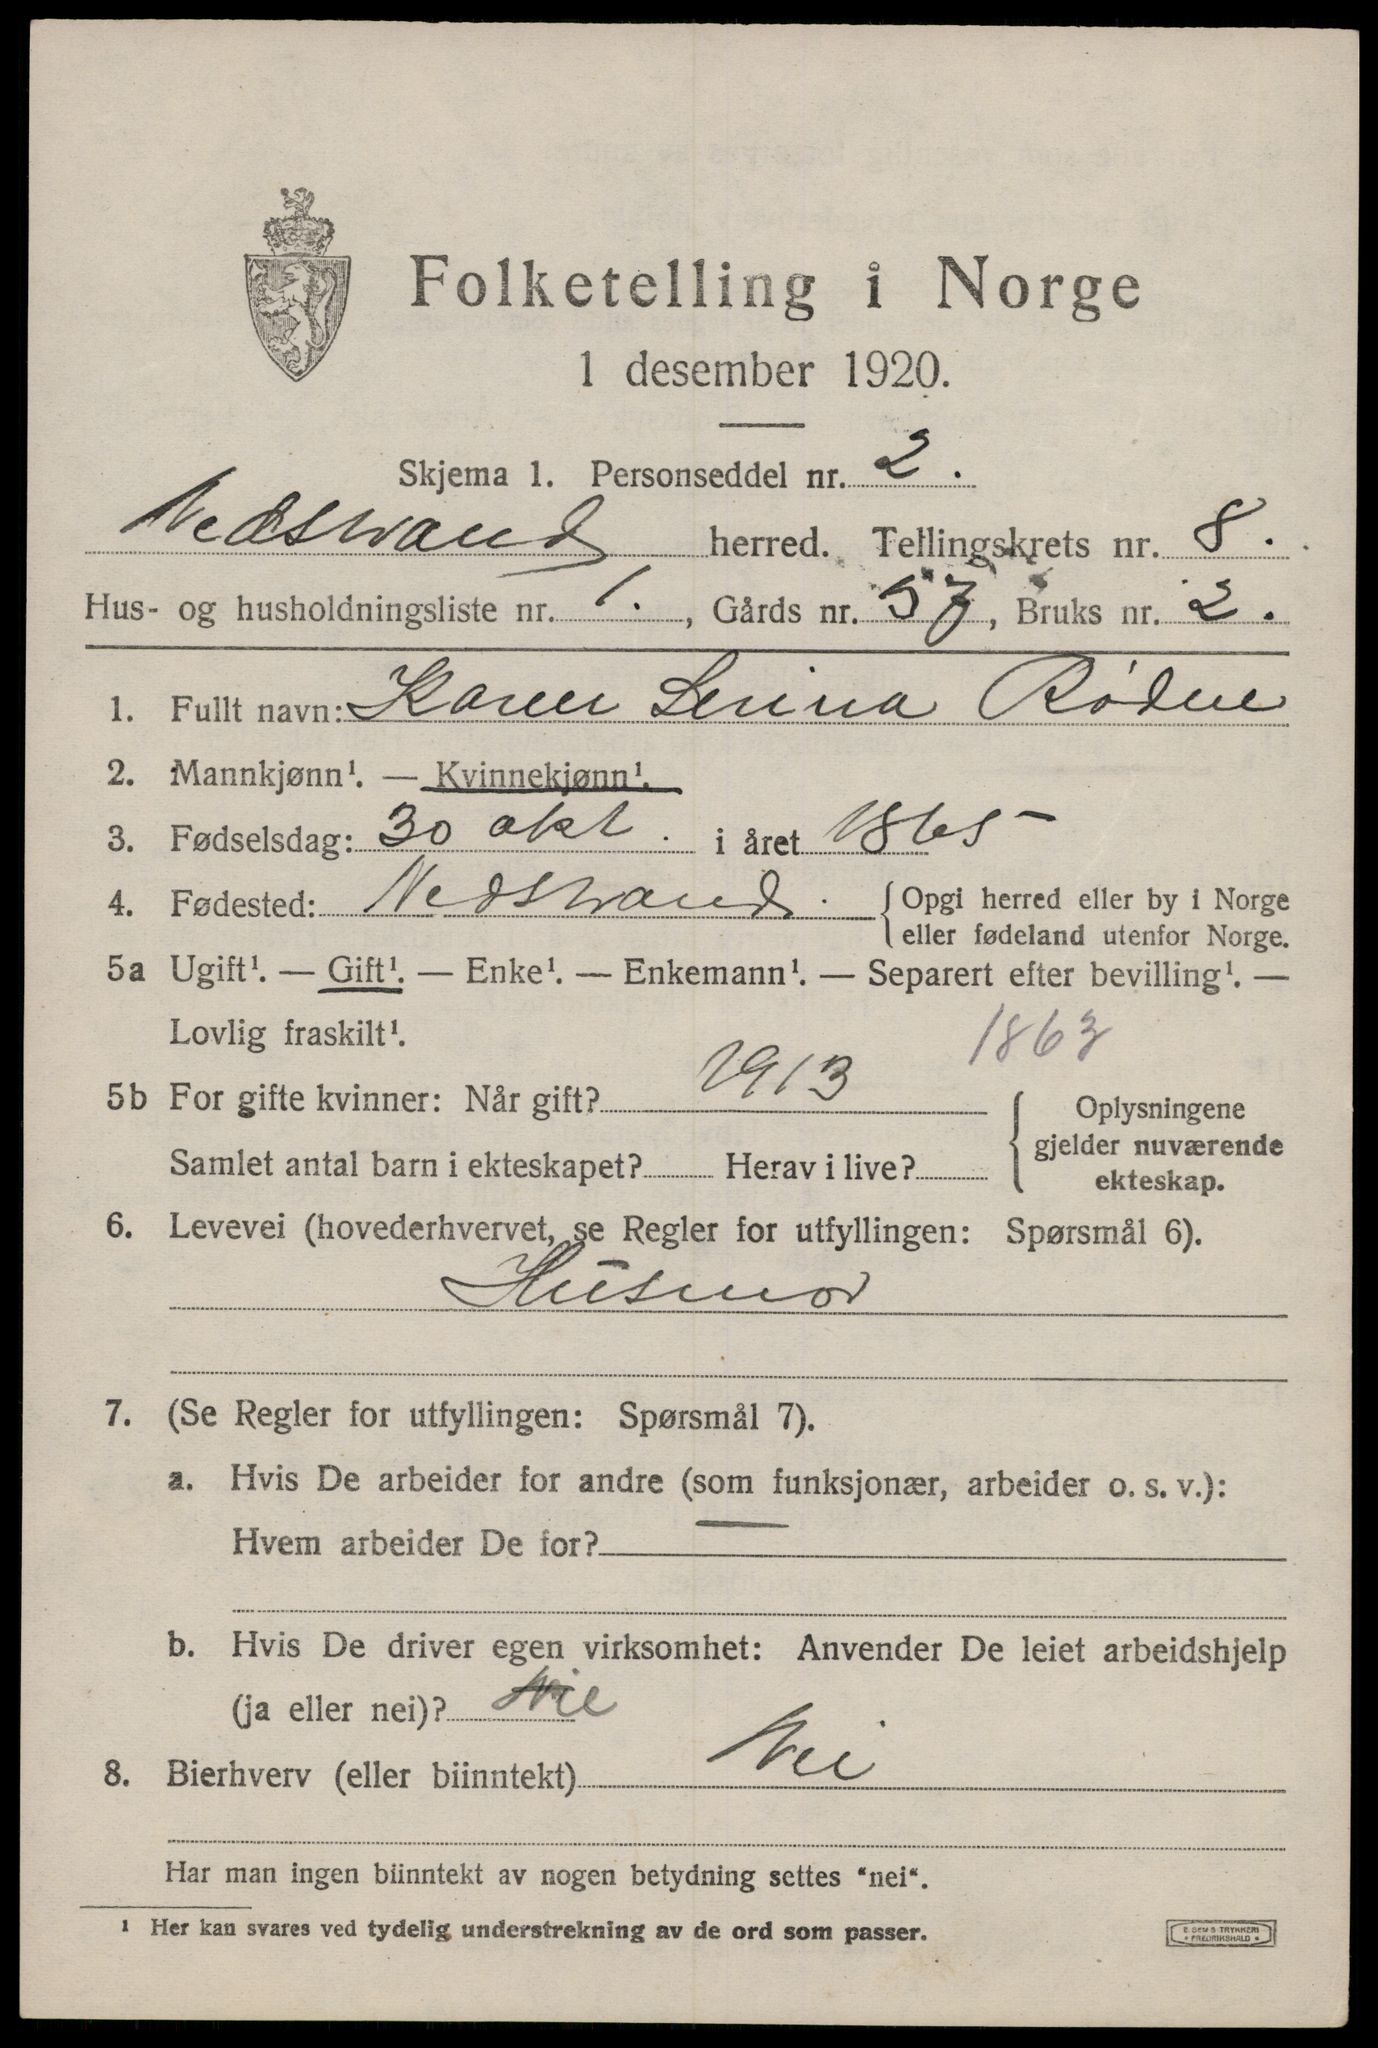 Folketelling i Norge
1 desember 1920.
Skjema 1. Personseddel nr. 2.
Nedstrand herred. Tellingskrets nr. 8.
Hus- og husholdningsliste nr. 1., Gårds nr. 57, Bruks nr. 2.
1. Fullt navn: Karen Serina Rødne
2. Mannkjønn¹. — Kvinnekjønn¹.
3. Fødselsdag: 30 okt. i året 1865
4. Fødested: Nedstrand. {Opgi herred eller by i Norge
eller fødeland utenfor Norge.
5a Ugift¹. — Gift¹. — Enke¹. — Enkemann¹. — Separert efter bevilling¹. —
Lovlig fraskilt¹. 1863
5b For gifte kvinner: Når gift? 1913 Oplysningene
gjelder nuværende
Samlet antal barn i ekteskapet? Herav i live? ekteskap.
6. Levevei (hovederhvervet, se Regler for utfyllingen: Spørsmål 6).
Husmor
7. (Se Regler for utfyllingen: Spørsmål 7).
a. Hvis De arbeider for andre (som funksjonær, arbeider o. s. v.):
Hvem arbeider De for? —
b. Hvis De driver egen virksomhet: Anvender De leiet arbeidshjelp
(ja eller nei)? Nie
8. Bierhverv (eller biinntekt) Nei
Har man ingen biinntekt av nogen betydning settes "nei".
¹ Her kan svares ved tydelig understrekning av de ord som passer.
E. SEM'S TRYKKERI
FREDRIKSHALD